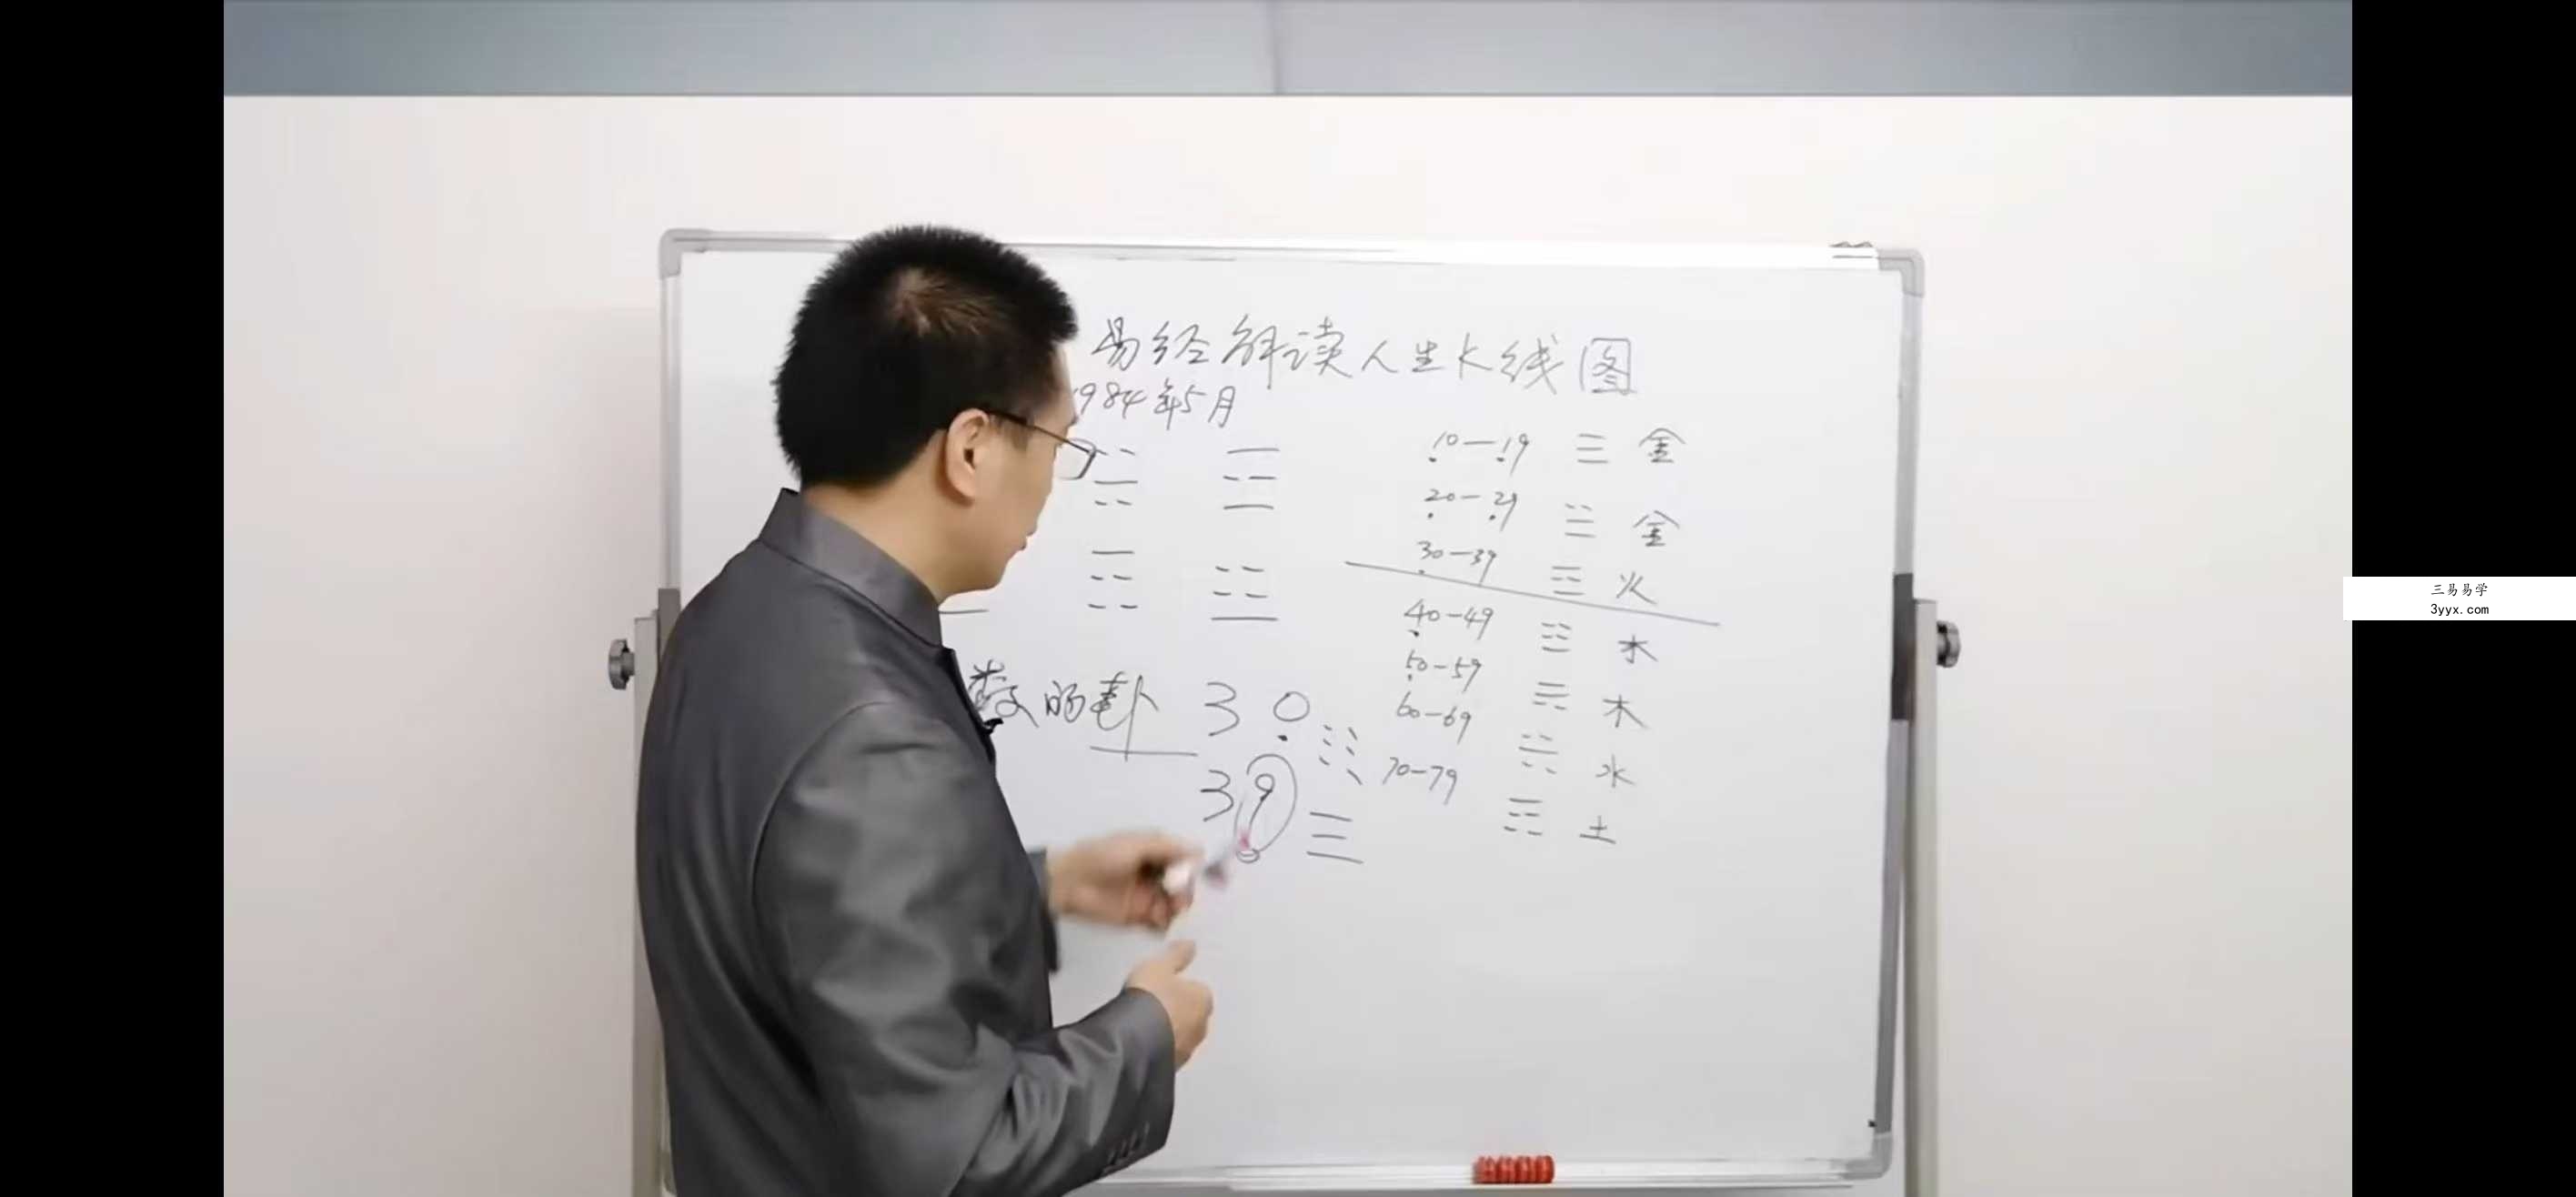 易经解读人生K线图
1984年5月
10-19 ☰ 金
20-29 ☱ 金
30-39 ☲ 火
40-49 ☳ 木
50-59 ☴ 木
60-69 ☵ 水
70-79 ☶ 土
数的卦 30 ☷
39 ☰
三易易学
3yyx.com